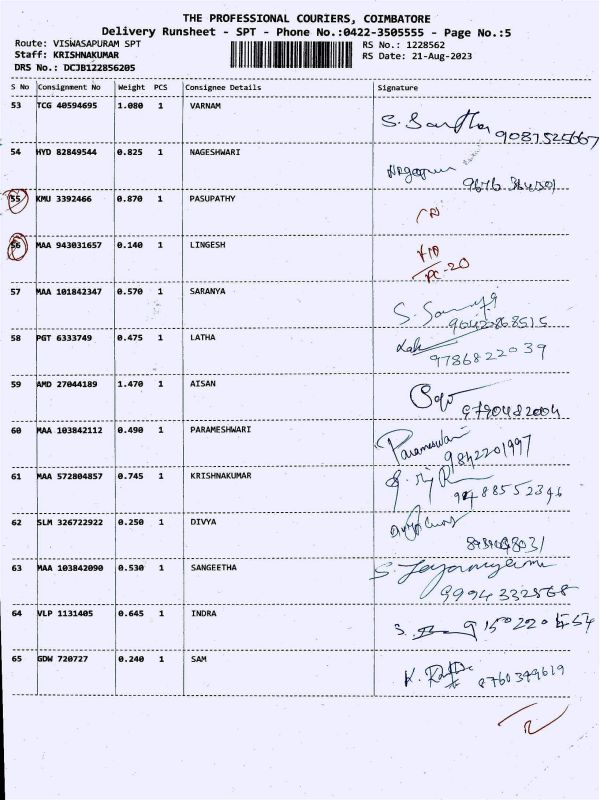 THE PROFESSIONAL COURIERS, COIMBATORE
Delivery Runsheet - SPT - Phone No.:0422-3505555 - Page No.:5
Route: VISWASAPURAM SPT RS No.: 1228562
Staff: KRISHNAKUMAR RS Date: 21-Aug-2023
DRS No.: DCJB122856205
S No Consignment No Weight PCS Consignee Details Signature
53 TCG 40594695 1.080 1 VARNAM S. Santha
54 HYD 82849544 0.825 1 NAGESHWARI
55 KMU 3392466 0.870 1 PASUPATHY
56 MAA 943031657 0.140 1 LINGESH
57 MAA 101842347 0.570 1 SARANYA
58 PGT 6333749 0.475 1 LATHA
9786822039
59 AMD 27044189 1.470 1 AISAN
9790482004
60 MAA 103842112 0.490 1 PARAMESHWARI Parameswari
9842201997
61 MAA 572804857 0.745 1 KRISHNAKUMAR
9488552346
62 SLM 326722922 0.250 1 DIVYA
63 MAA 103842090 0.530 1 SANGEETHA
9994332568
64 VLP 1131405 0.645 1 INDRA
65 GDW 720727 0.240 1 SAM
8760349619